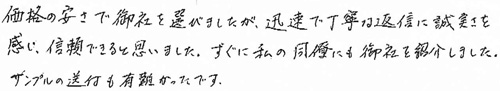 価格の安さで御社を選びましたが、迅速で丁寧な返信に誠実さを
感じ、信頼できると思いました。すぐに私の同僚にも御社を紹介しました。
サンプルの送付も有難かったです。